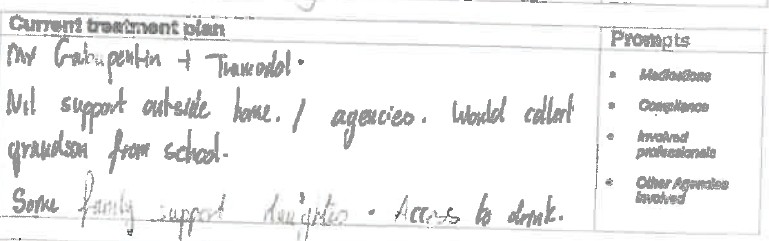 Current treatment plan
Gabapentin + Tramadol.
Nil support outside home. / agencies. Would collect
grandson from school.
Some family support daughter. Access to drink.
Prompts
• Medications
• Compliance
• Involved
professionals
• Other Agencies
Involved